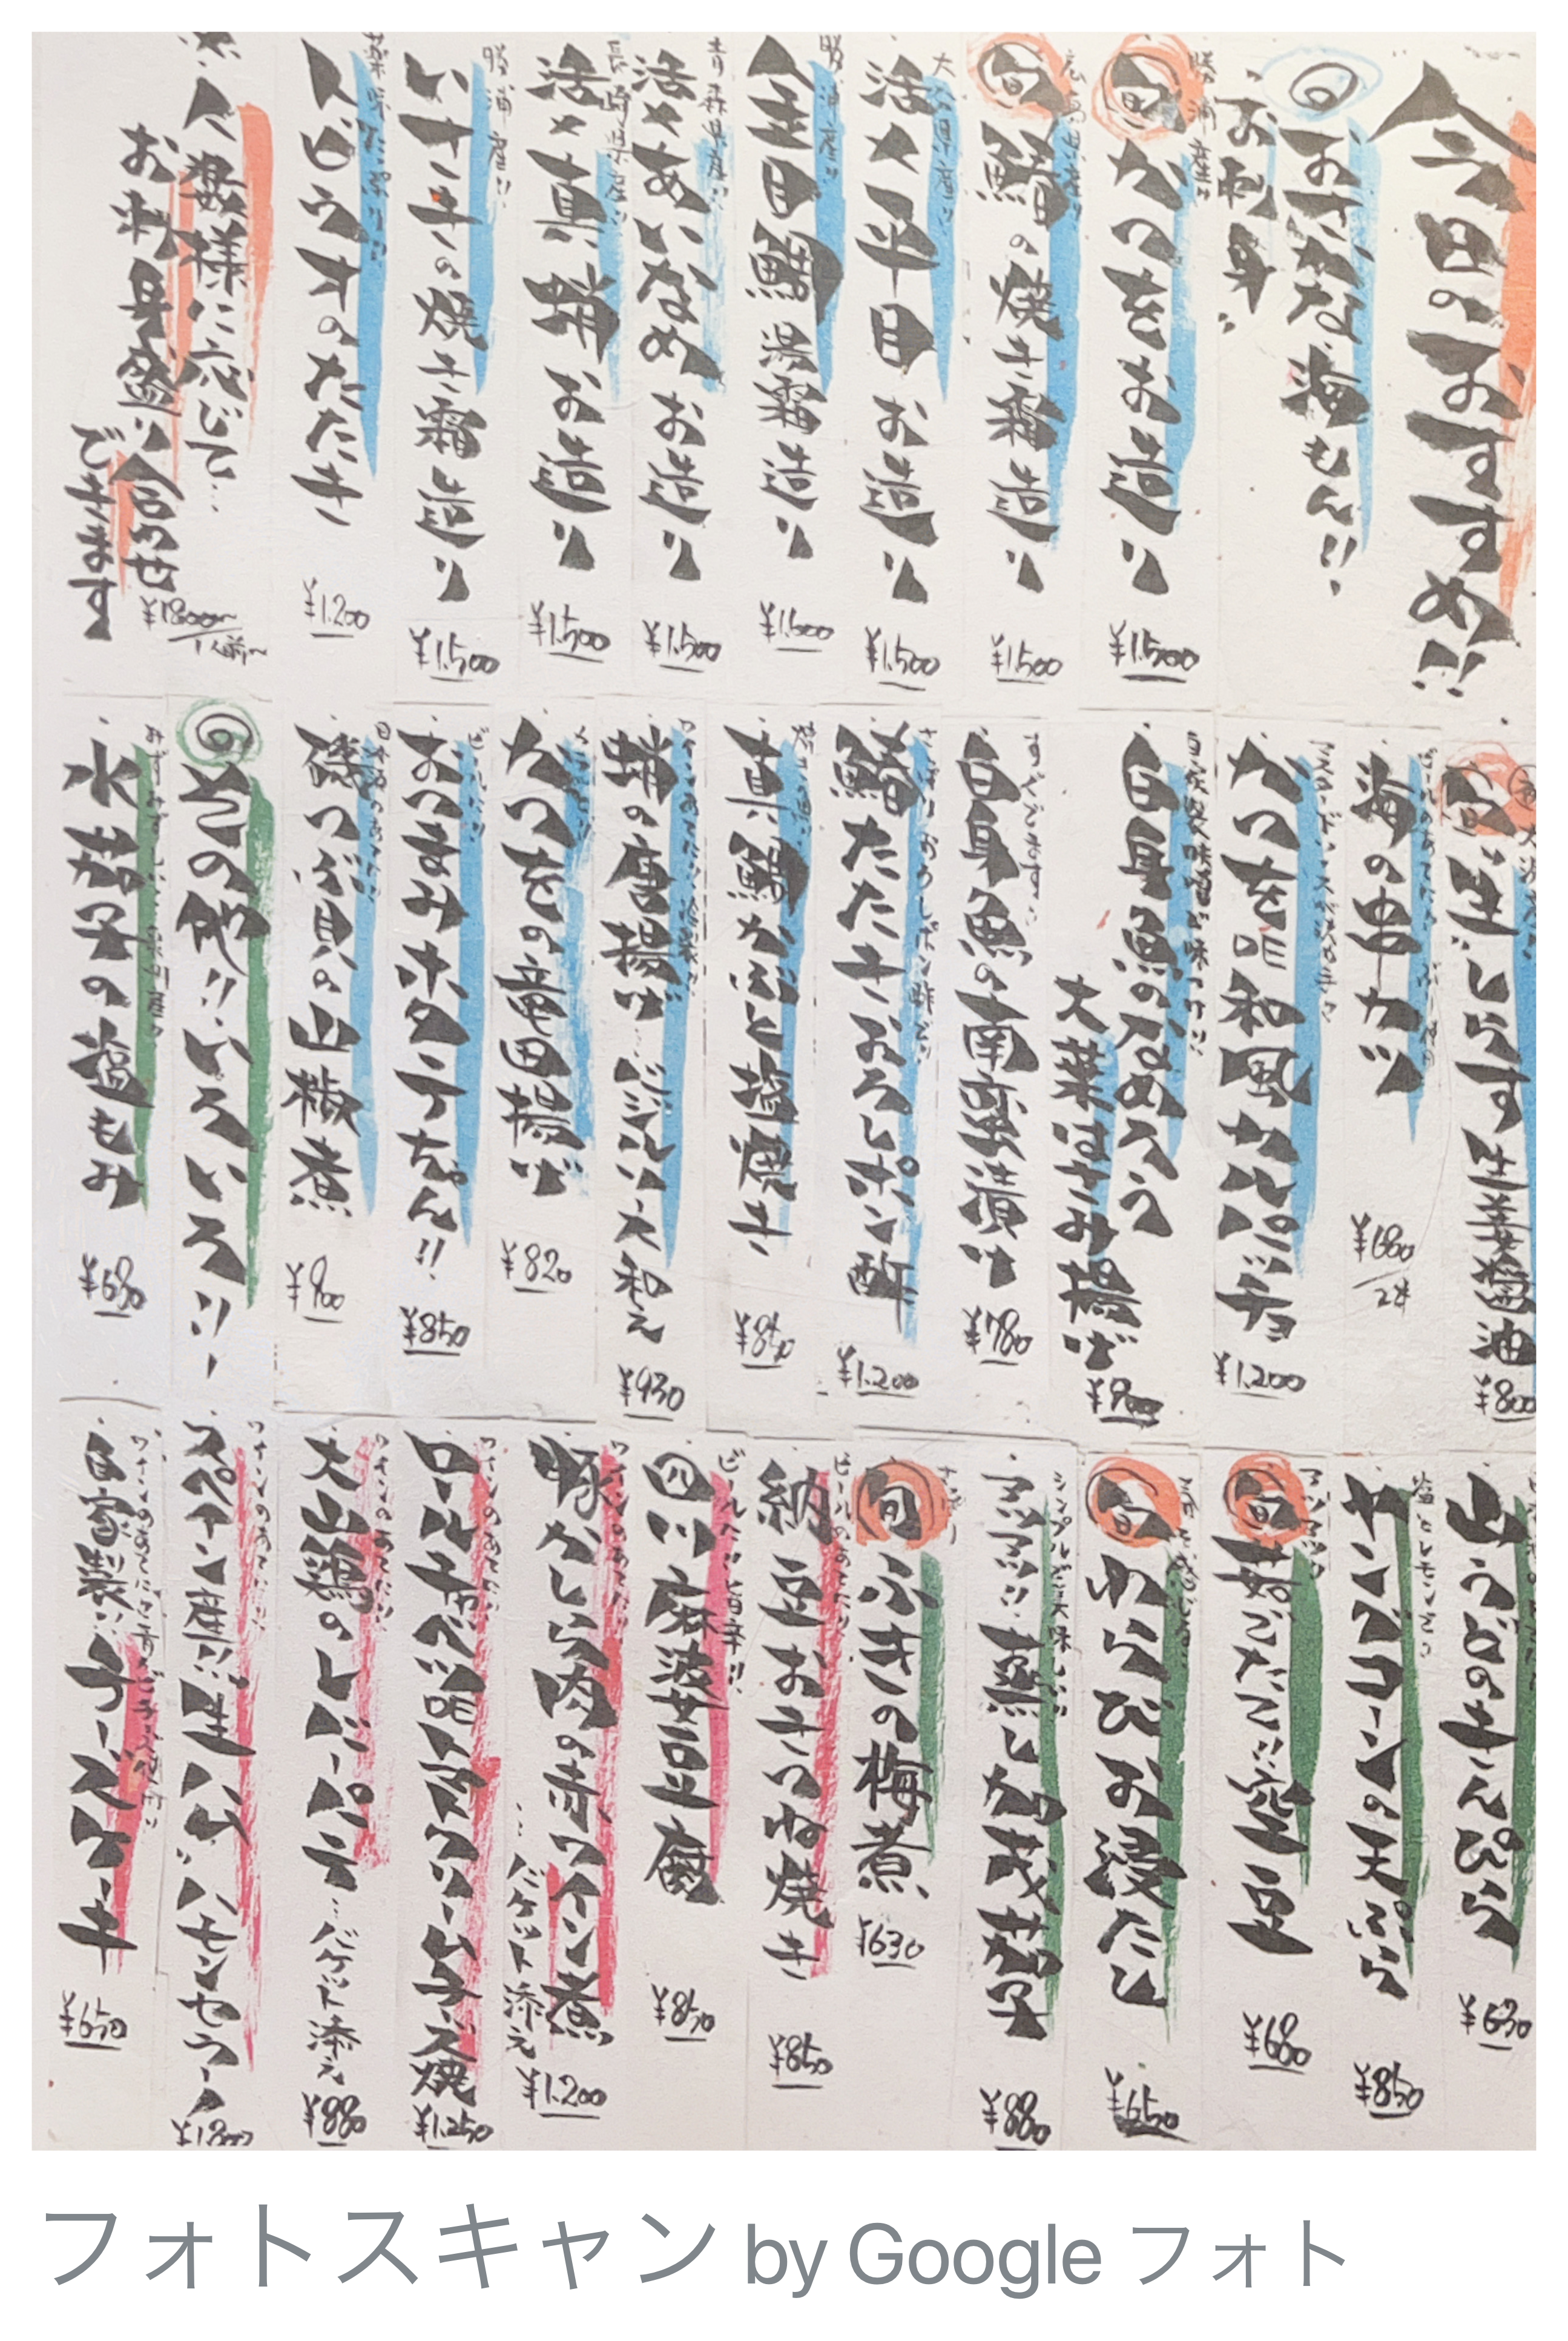 今日のおすすめ!!
おさかな海もん!!
お刺身
勝浦産!!
旬 かつをお造り
¥1.500
旬 鰆の焼き霜造り
¥1.500
活〆平目お造り
¥1.500
勝浦産!!
金目鯛湯霜造り
¥1.500
青森県産!!
活〆あいなめお造り
¥1.500
長崎県産!!
活〆真蛸お造り
¥1.500
勝浦産!!
いさきの焼き霜造り
¥1.500
トビウオのたたき
¥1.200
人数様に応じて…
お刺身盛り合わせ
できます
¥1800〜
1人前〜
旬 生しらす生姜醤油
¥800
海の串カツ
¥680
2本
かつを 昨和風カルパッチョ
¥1.200
白身魚のなめろう
大葉はさみ揚げ
¥900
すぐでます!!
白身魚の南蛮漬け
¥780
鰆たたきおろしポン酢
¥1.200
真鯛かぶと塩焼き
¥850
蛸の唐揚げ…バジルソース和え
¥930
かつをの竜田揚げ
¥820
おつまみホタテちゃん!!
¥850
磯つぶ貝の山椒煮
¥800
その他!!いろいろ!!
水茄子の塩もみ
¥680
山うどのきんぴら
¥630
塩とレモンで
ヤングコーンの天ぷら
¥850
旬 茹でたて!!空豆
¥680
旬 わらびお浸たし
¥650
アツアツ!!蒸し加茂茄子
¥880
旬 ふきの梅煮
¥630
納豆おきつね焼き
¥850
ビールに!!旨辛!!
四川麻婆豆腐
¥850
ワインのあてに!!
豚かしら肉の赤ワイン煮
…バケット添え
¥1.200
ワインのあてに!!
ロールキャベツ トマトクリームチーズ焼
¥1.250
ワインのあてに!!
大山鶏のレバーパテ…バケット添え
¥880
ワインのあてに!!
スペイン産!!生ハム ハモンセラーノ
自家製!!チーズケーキ
¥650
フォトスキャン by Google フォト